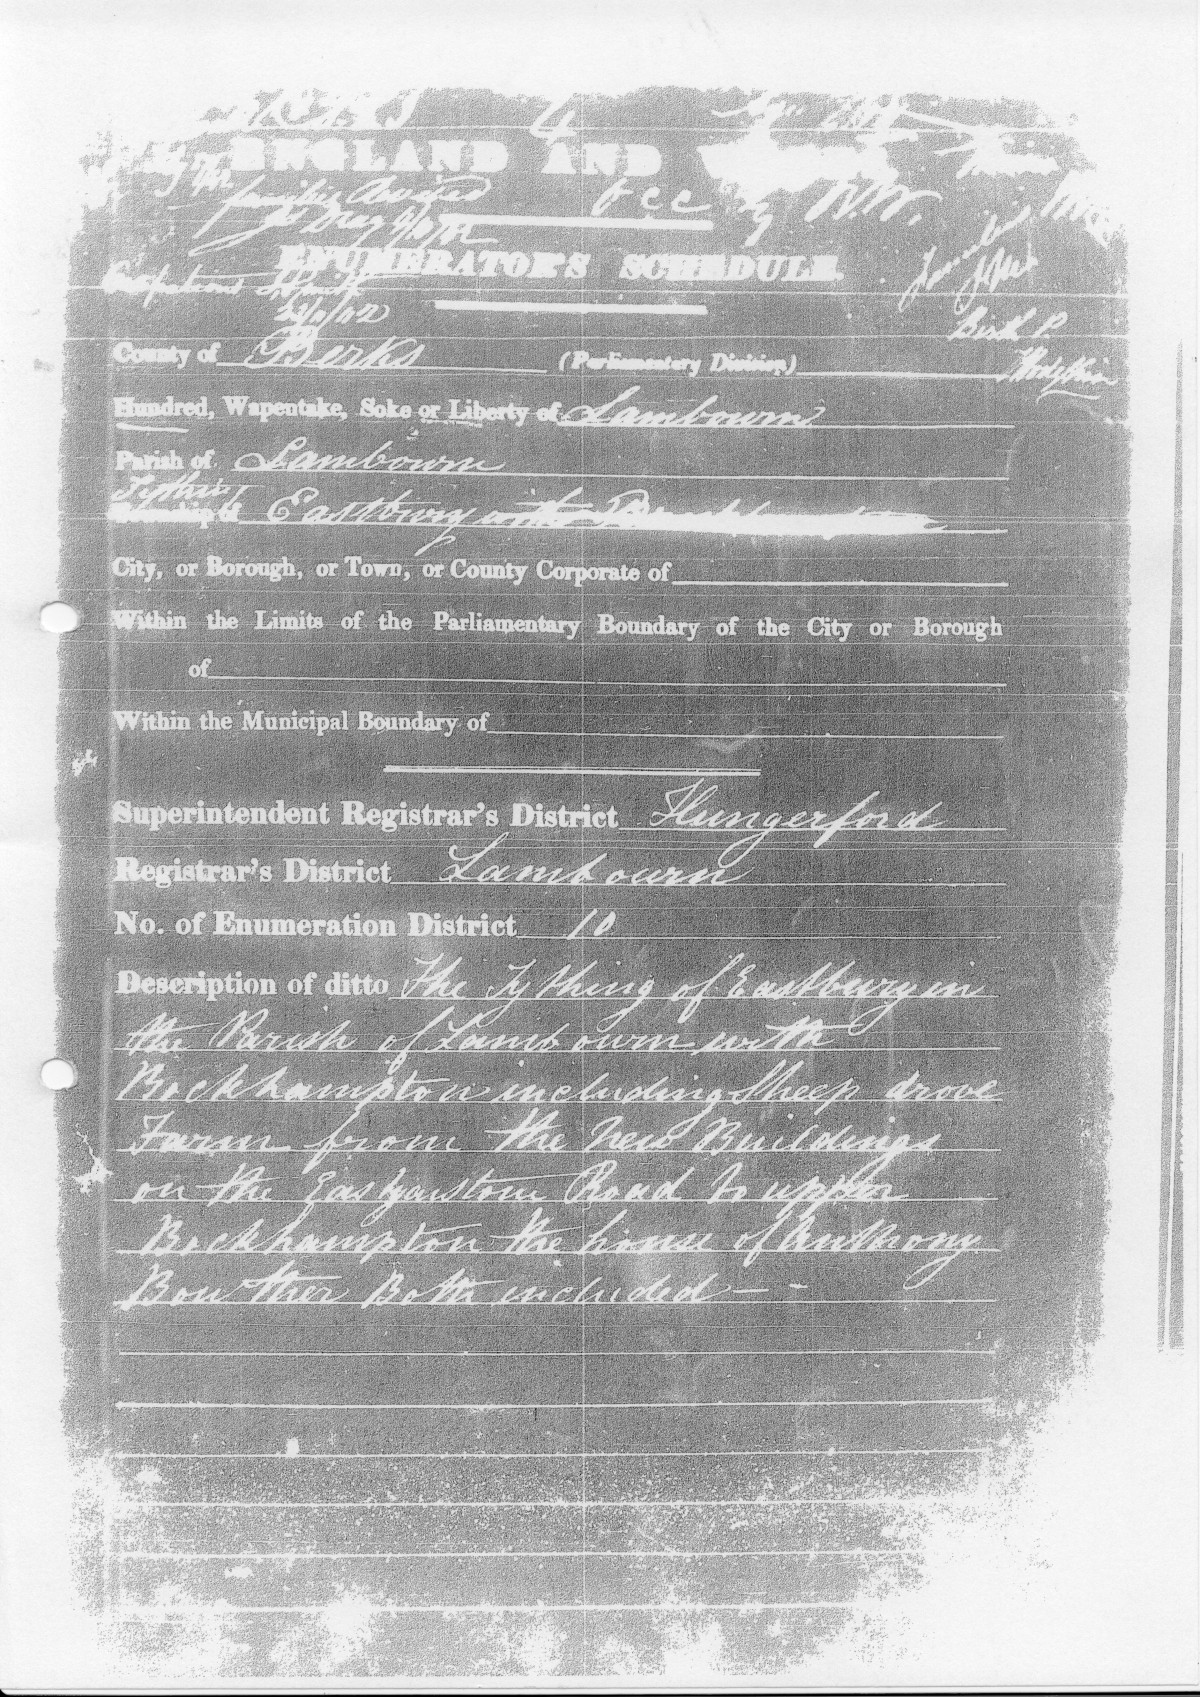 ENGLAND AND
families
ENUMERATOR'S SCHEDULE.
County of Berks (Parliamentary Division)
Birth P
Hundred, Wapentake, Soke or Liberty of Lambourn
Parish of Lambourn
Tything
Township of Eastbury with
City, or Borough, or Town, or County Corporate of
Within the Limits of the Parliamentary Boundary of the City or Borough
of
Within the Municipal Boundary of
Superintendent Registrar's District Hungerford
Registrar's District Lambourn
No. of Enumeration District 10
Description of ditto The Tything of Eastbury in
the Parish of Lambourn with
Bockhampton including Sheep drove
Farm from the New Buildings
on the Eastgarstone Road to upper
Bockhampton the house of Anthony
Bowther Both included - -